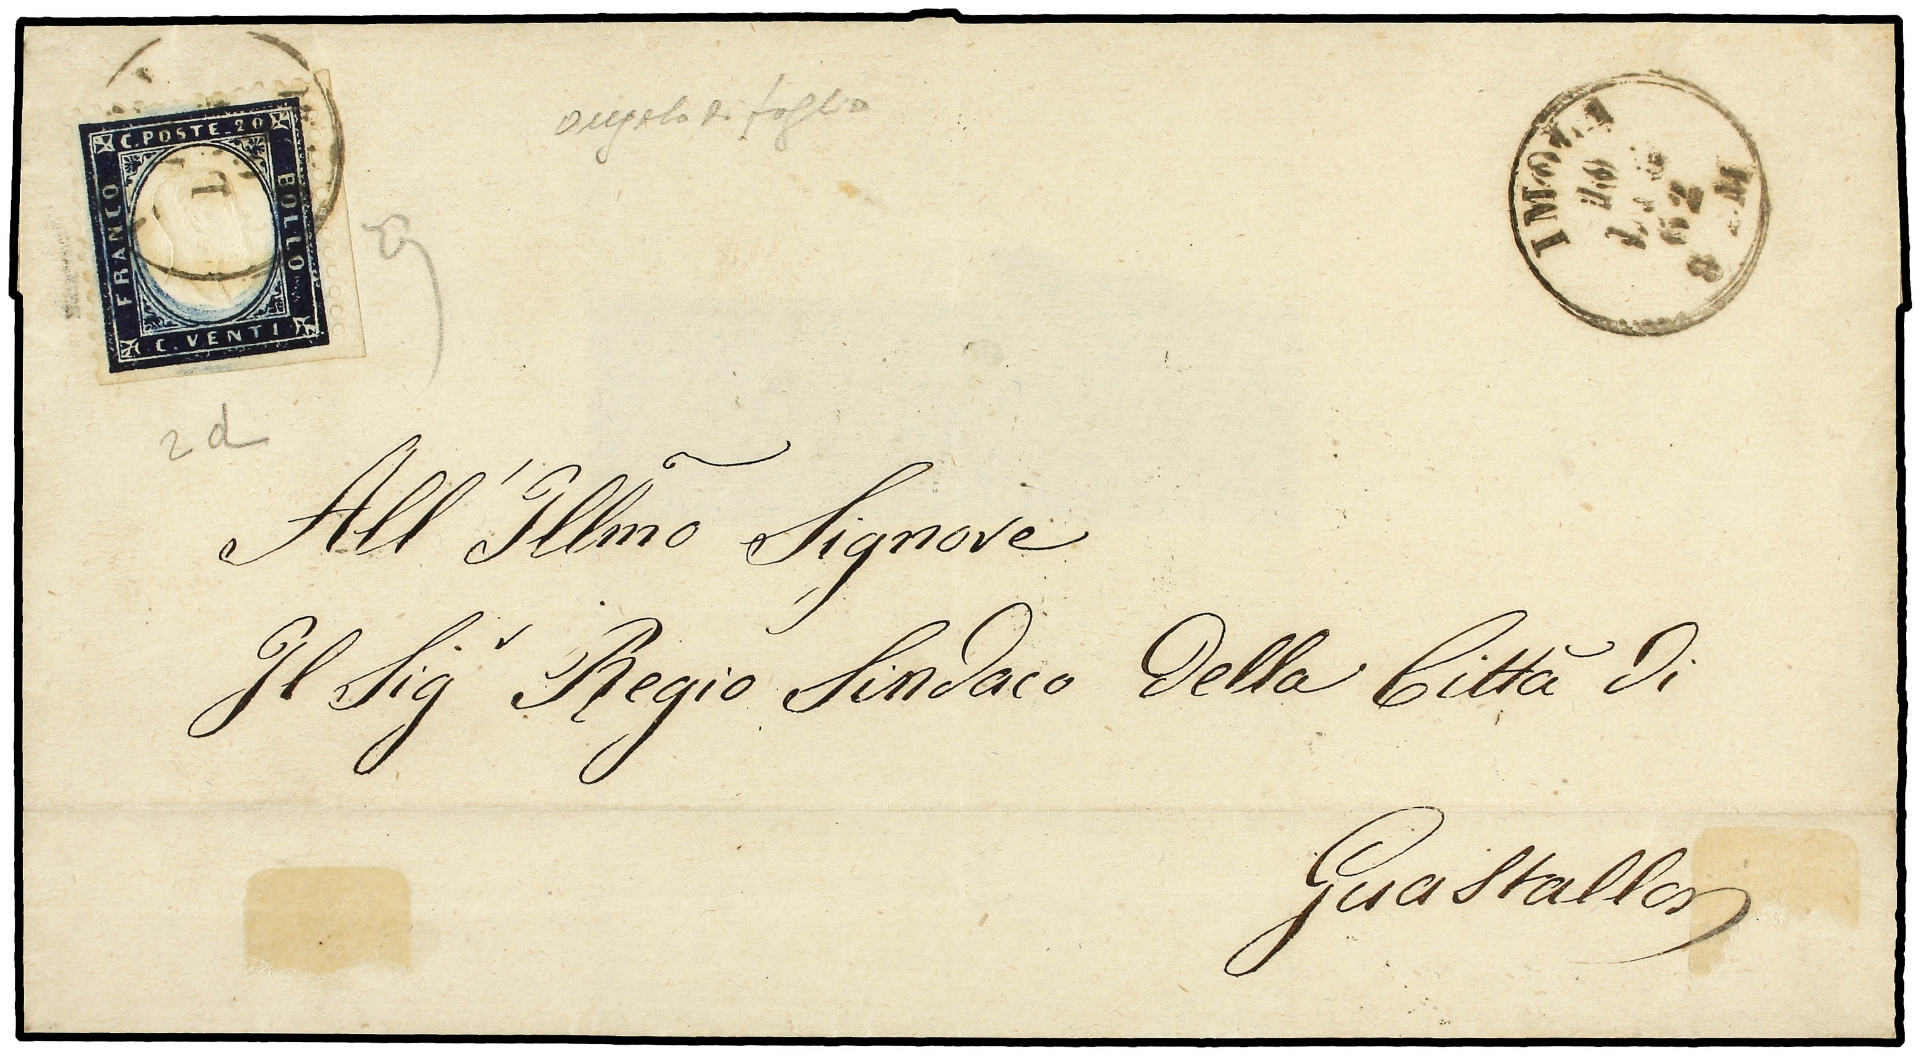 C. POSTE. 20
FRANCO
BOLLO
C. VENTI.
angolo di foglio
IMOLA
62
8 M
2d
All' Illmo Signore
Il Sigr Regio Sindaco Della Città di
Guastalla